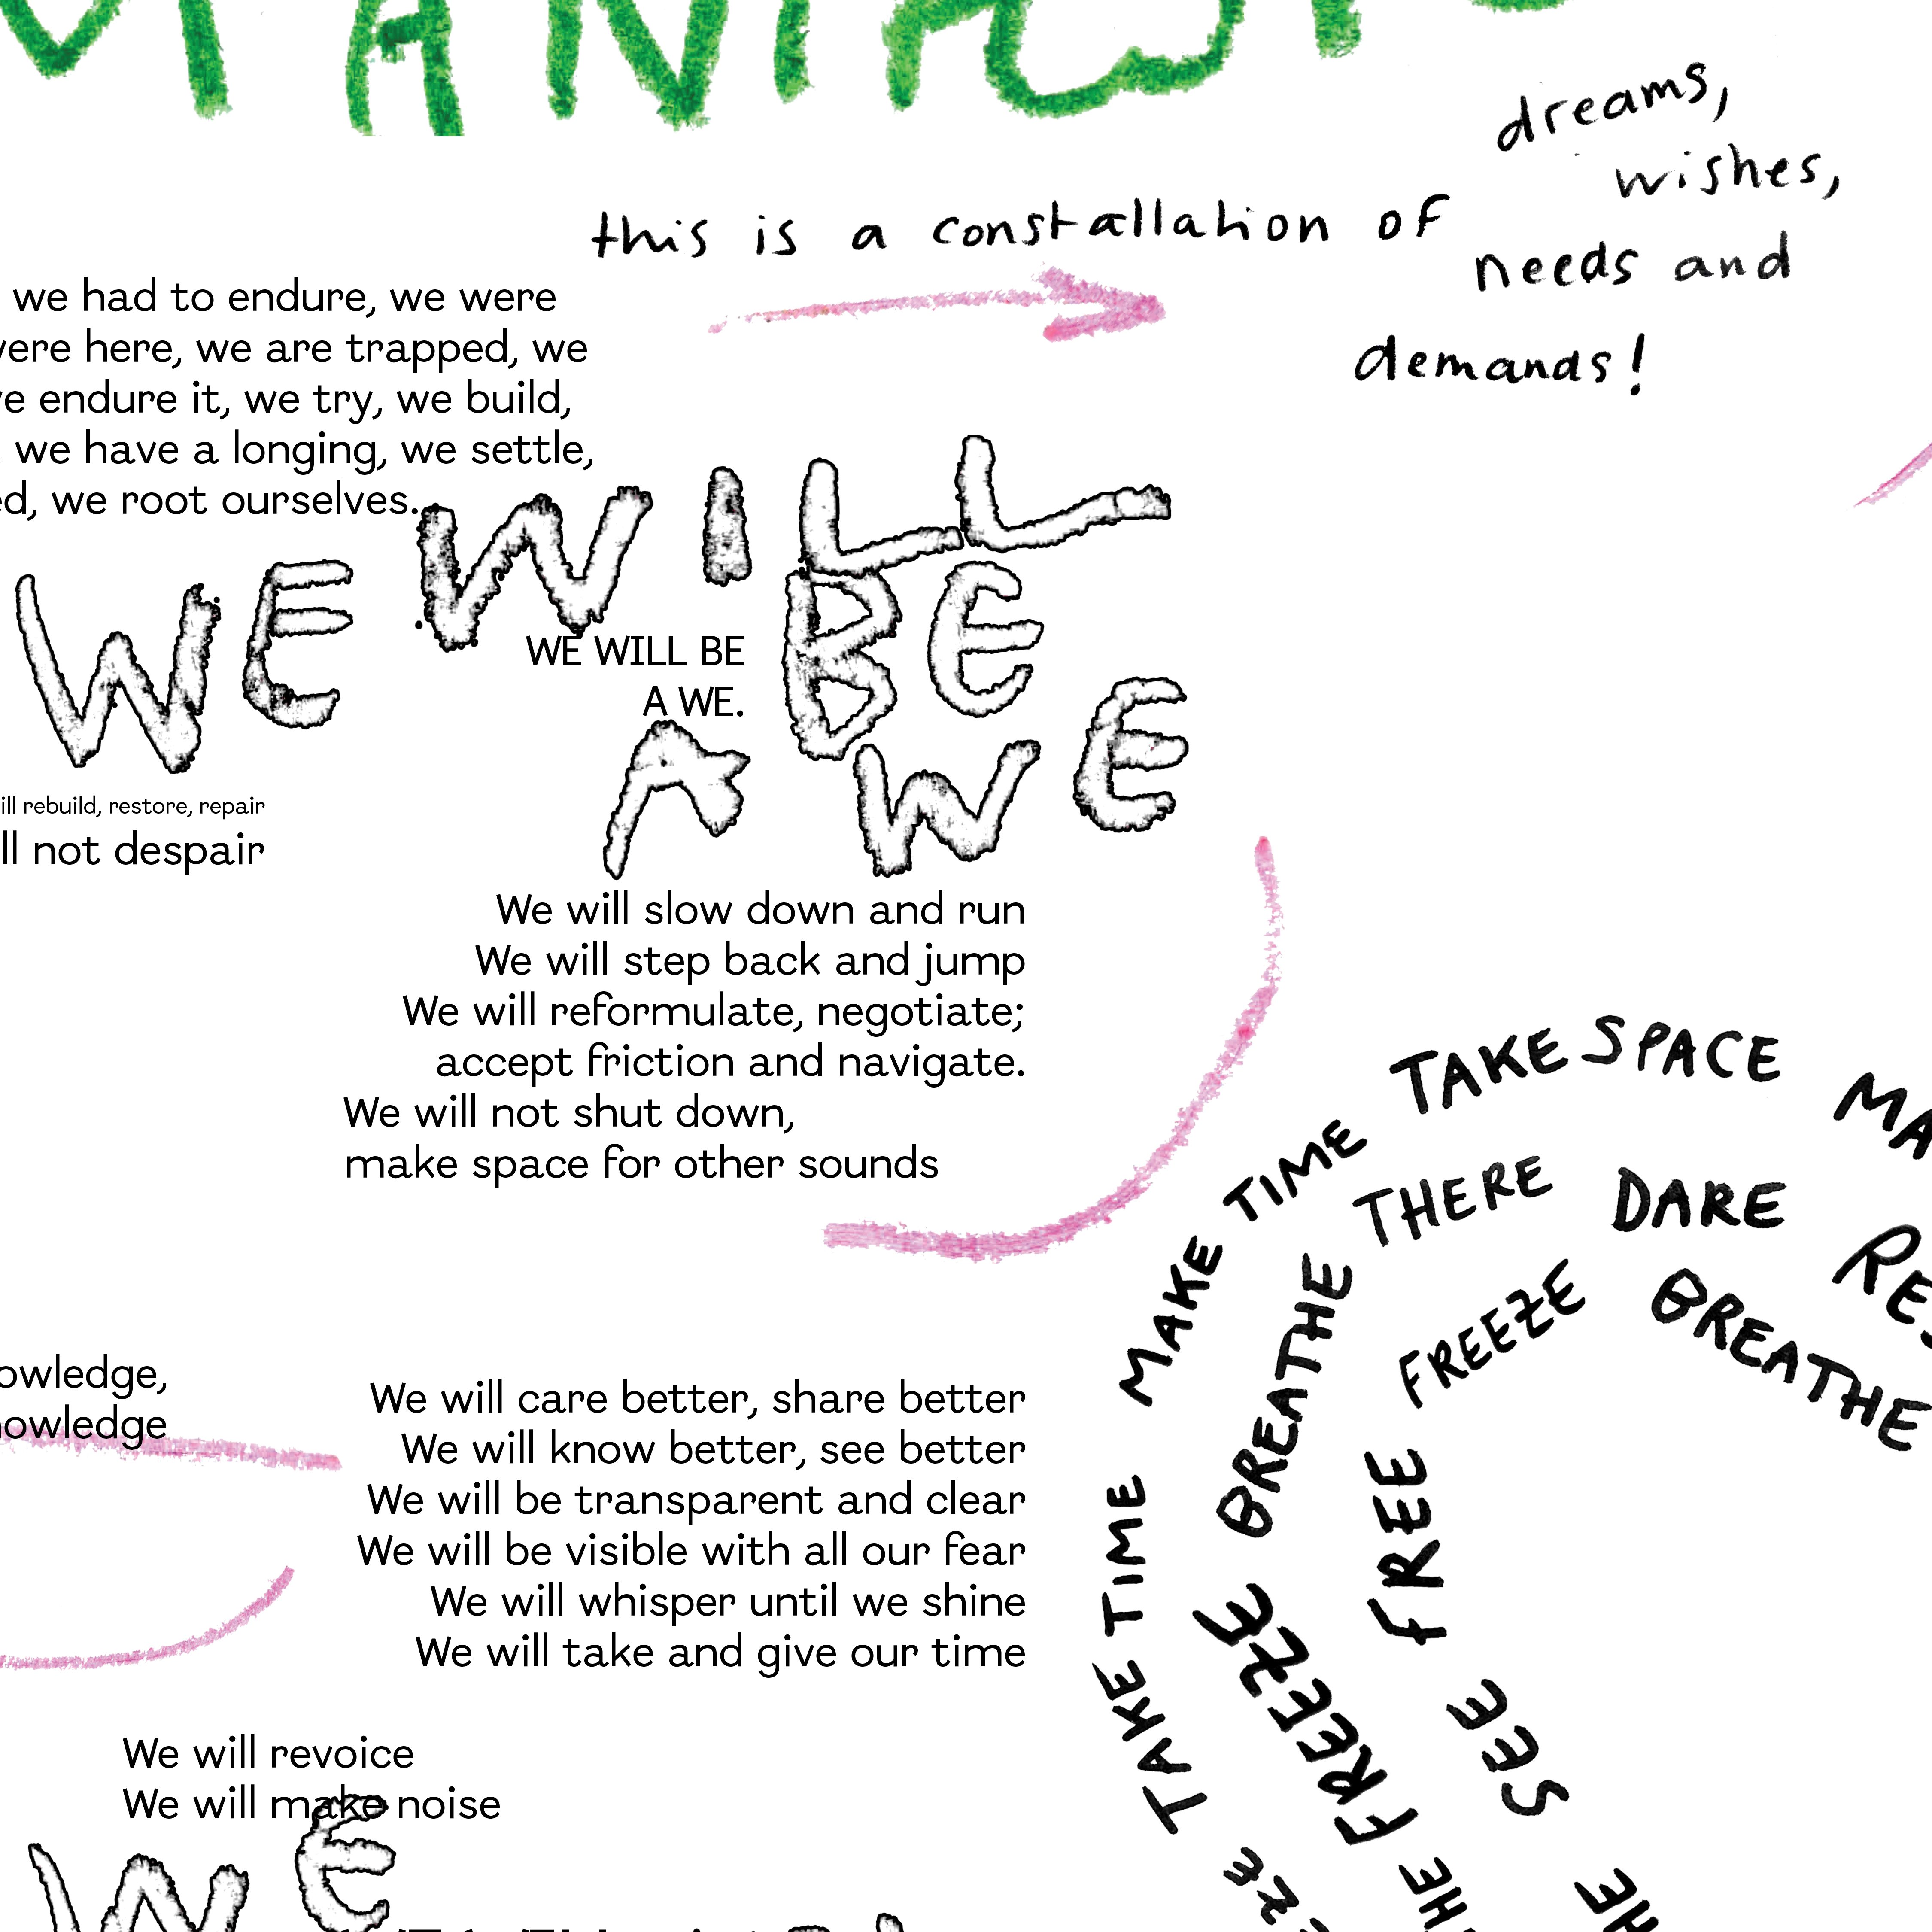 MANIFESTO
dreams,
wishes,
this is a constallation of
needs and
demands!
we had to endure, we were
were here, we are trapped, we
we endure it, we try, we build,
we have a longing, we settle,
ed, we root ourselves.
WE WILL BE A WE
WE WILL BE
A WE.
ill rebuild, restore, repair
ll not despair
We will slow down and run
We will step back and jump
We will reformulate, negotiate;
accept friction and navigate.
We will not shut down,
make space for other sounds
owledge,
nowledge
We will care better, share better
We will know better, see better
We will be transparent and clear
We will be visible with all our fear
We will whisper until we shine
We will take and give our time
We will revoice
We will make noise
WE
TAKE TIME MAKE TIME TAKE SPACE MA
FREEZE BREATHE THERE DARE RES
SEE FREE FREEZE BREATHE